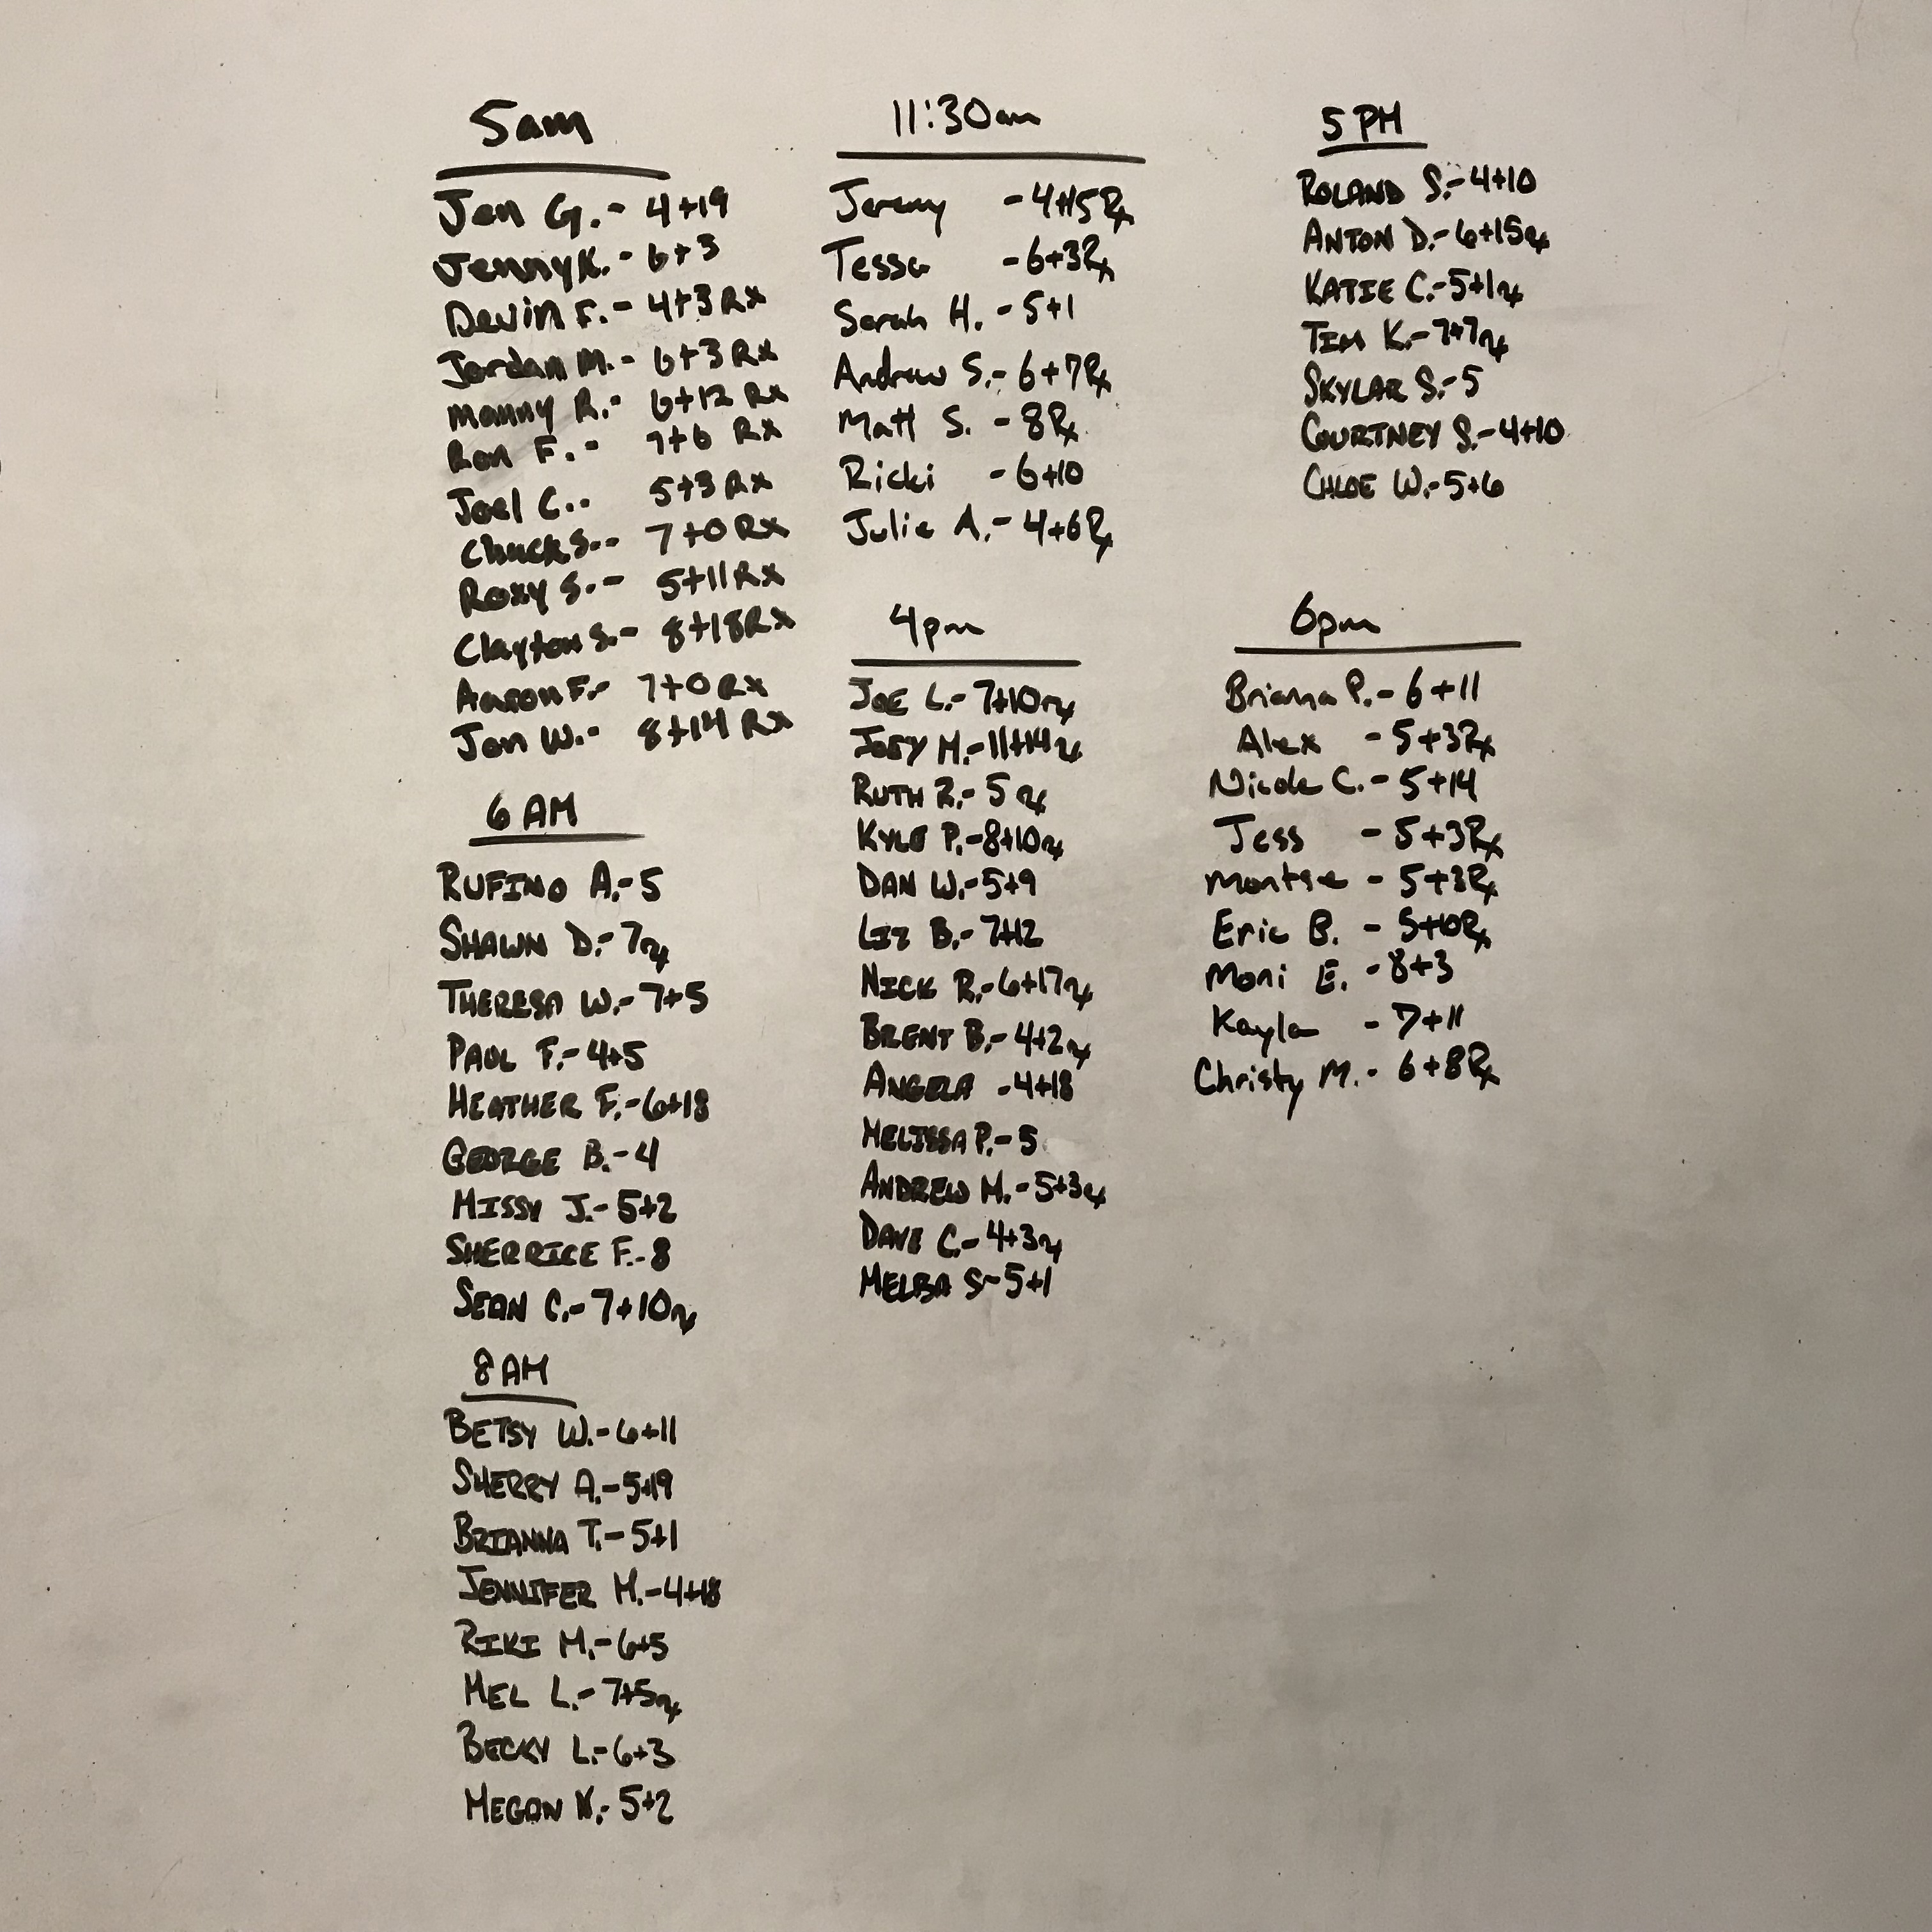 5am
Jen G.- 4+19
Jenny K.- 6+3
Devin F.- 4+3 Rx
Jordan M.- 6+3 Rx
Manny R.- 6+12 Rx
Ron F.- 7+6 Rx
Joel C.- 5+3 Rx
Chuck S.- 7+0 Rx
Roxy S.- 5+11 Rx
Clayton S.- 8+18 Rx
Aaron F.- 7+0 Rx
Jon W.- 8+14 Rx
6 AM
RUFINO A.- 5
SHAWN D.- 7 rx
THERESA W.- 7+5
PAUL F.- 4+5
HEATHER F.- 6+18
GEORGE B.- 4
MISSY J.- 5+2
SHERRICE F.- 8
SEAN C.- 7+10 rx
8 AM
BETSY W.- 6+11
SHERRY A.- 5+19
BRIANNA T.- 5+1
JENNIFER M.- 4+18
RIKI M.- 6+5
MEL L.- 7+5 rx
BECKY L.- 6+3
MEGAN - 5+2
11:30am
Jeremy - 4+15 Rx
Tessa - 6+3 Rx
Sarah H. - 5+1
Andrew S.- 6+7 Rx
Matt S. - 8 Rx
Ricki - 6+10
Julie A.- 4+6 Rx
4pm
JOE L.- 7+10 rx
JOEY M.- 11+14 rx
RUTH R.- 5 rx
KYLE P.- 8+10 rx
DAN W.- 5+9
LIZ B.- 7+12
NICK R.- 6+17 rx
BRENT B.- 4+2 rx
ANGELA - 4+18
MELISSA P.- 5
ANDREW M.- 5+3 rx
DAVE C.- 4+3 rx
MELBA S- 5+1
5 PM
ROLAND S.- 4+10
ANTON D.- 6+15 rx
KATIE C.- 5+1 rx
TIM K.- 7+7 rx
SKYLAR S.- 5
COURTNEY S.- 4+10
CHLOE W.- 5+6
6pm
Briana P.- 6+11
Alex - 5+3 Rx
Nicole C.- 5+14
Jess - 5+3 Rx
Montse - 5+3 Rx
Eric B. - 5+10 Rx
Moni E. - 8+3
Kayla - 7+11
Christy M.- 6+8 Rx